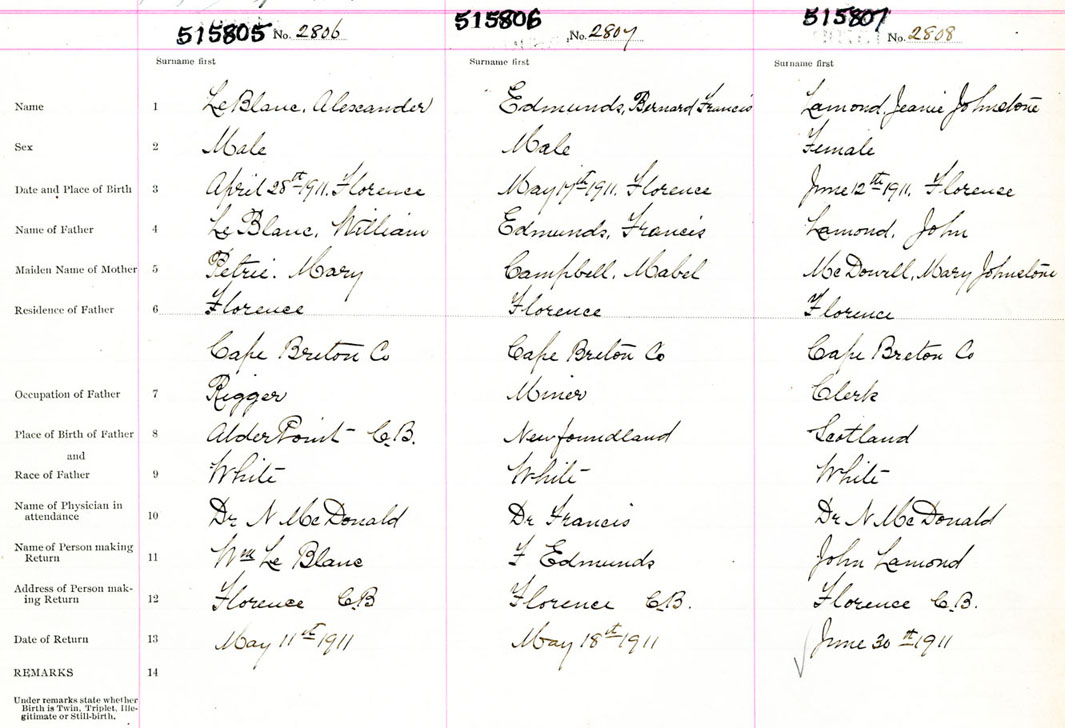 515805 No. 2806 515806 No. 2807 515807 No. 2808
Surname first Surname first Surname first
Name 1 LeBlanc, Alexander Edmunds, Bernard Francis Lamond, Jeanie Johnstone
Sex 2 Male Male Female
Date and Place of Birth 3 April 28th 1911. Florence May 17th 1911. Florence June 12th 1911. Florence
Name of Father 4 Le Blanc, William Edmunds, Francis Lamond, John
Maiden Name of Mother 5 Petrie. Mary Campbell, Mabel McDowell, Mary Johnstone
Residence of Father 6 Florence Florence Florence
Cape Breton Co Cape Breton Co Cape Breton Co
Occupation of Father 7 Rigger Miner Clerk
Place of Birth of Father 8 Alder Point C.B. Newfoundland Scotland
and
Race of Father 9 White White White
Name of Physician in
attendance 10 Dr N McDonald Dr Francis Dr N McDonald
Name of Person making
Return 11 Wm Le Blanc F Edmunds John Lamond
Address of Person mak-
ing Return 12 Florence C.B Florence C.B. Florence C.B.
Date of Return 13 May 11th 1911 May 18th 1911 June 30th 1911
REMARKS 14
Under remarks state whether
Birth is Twin, Triplet, Ille-
gitimate or Still-birth.